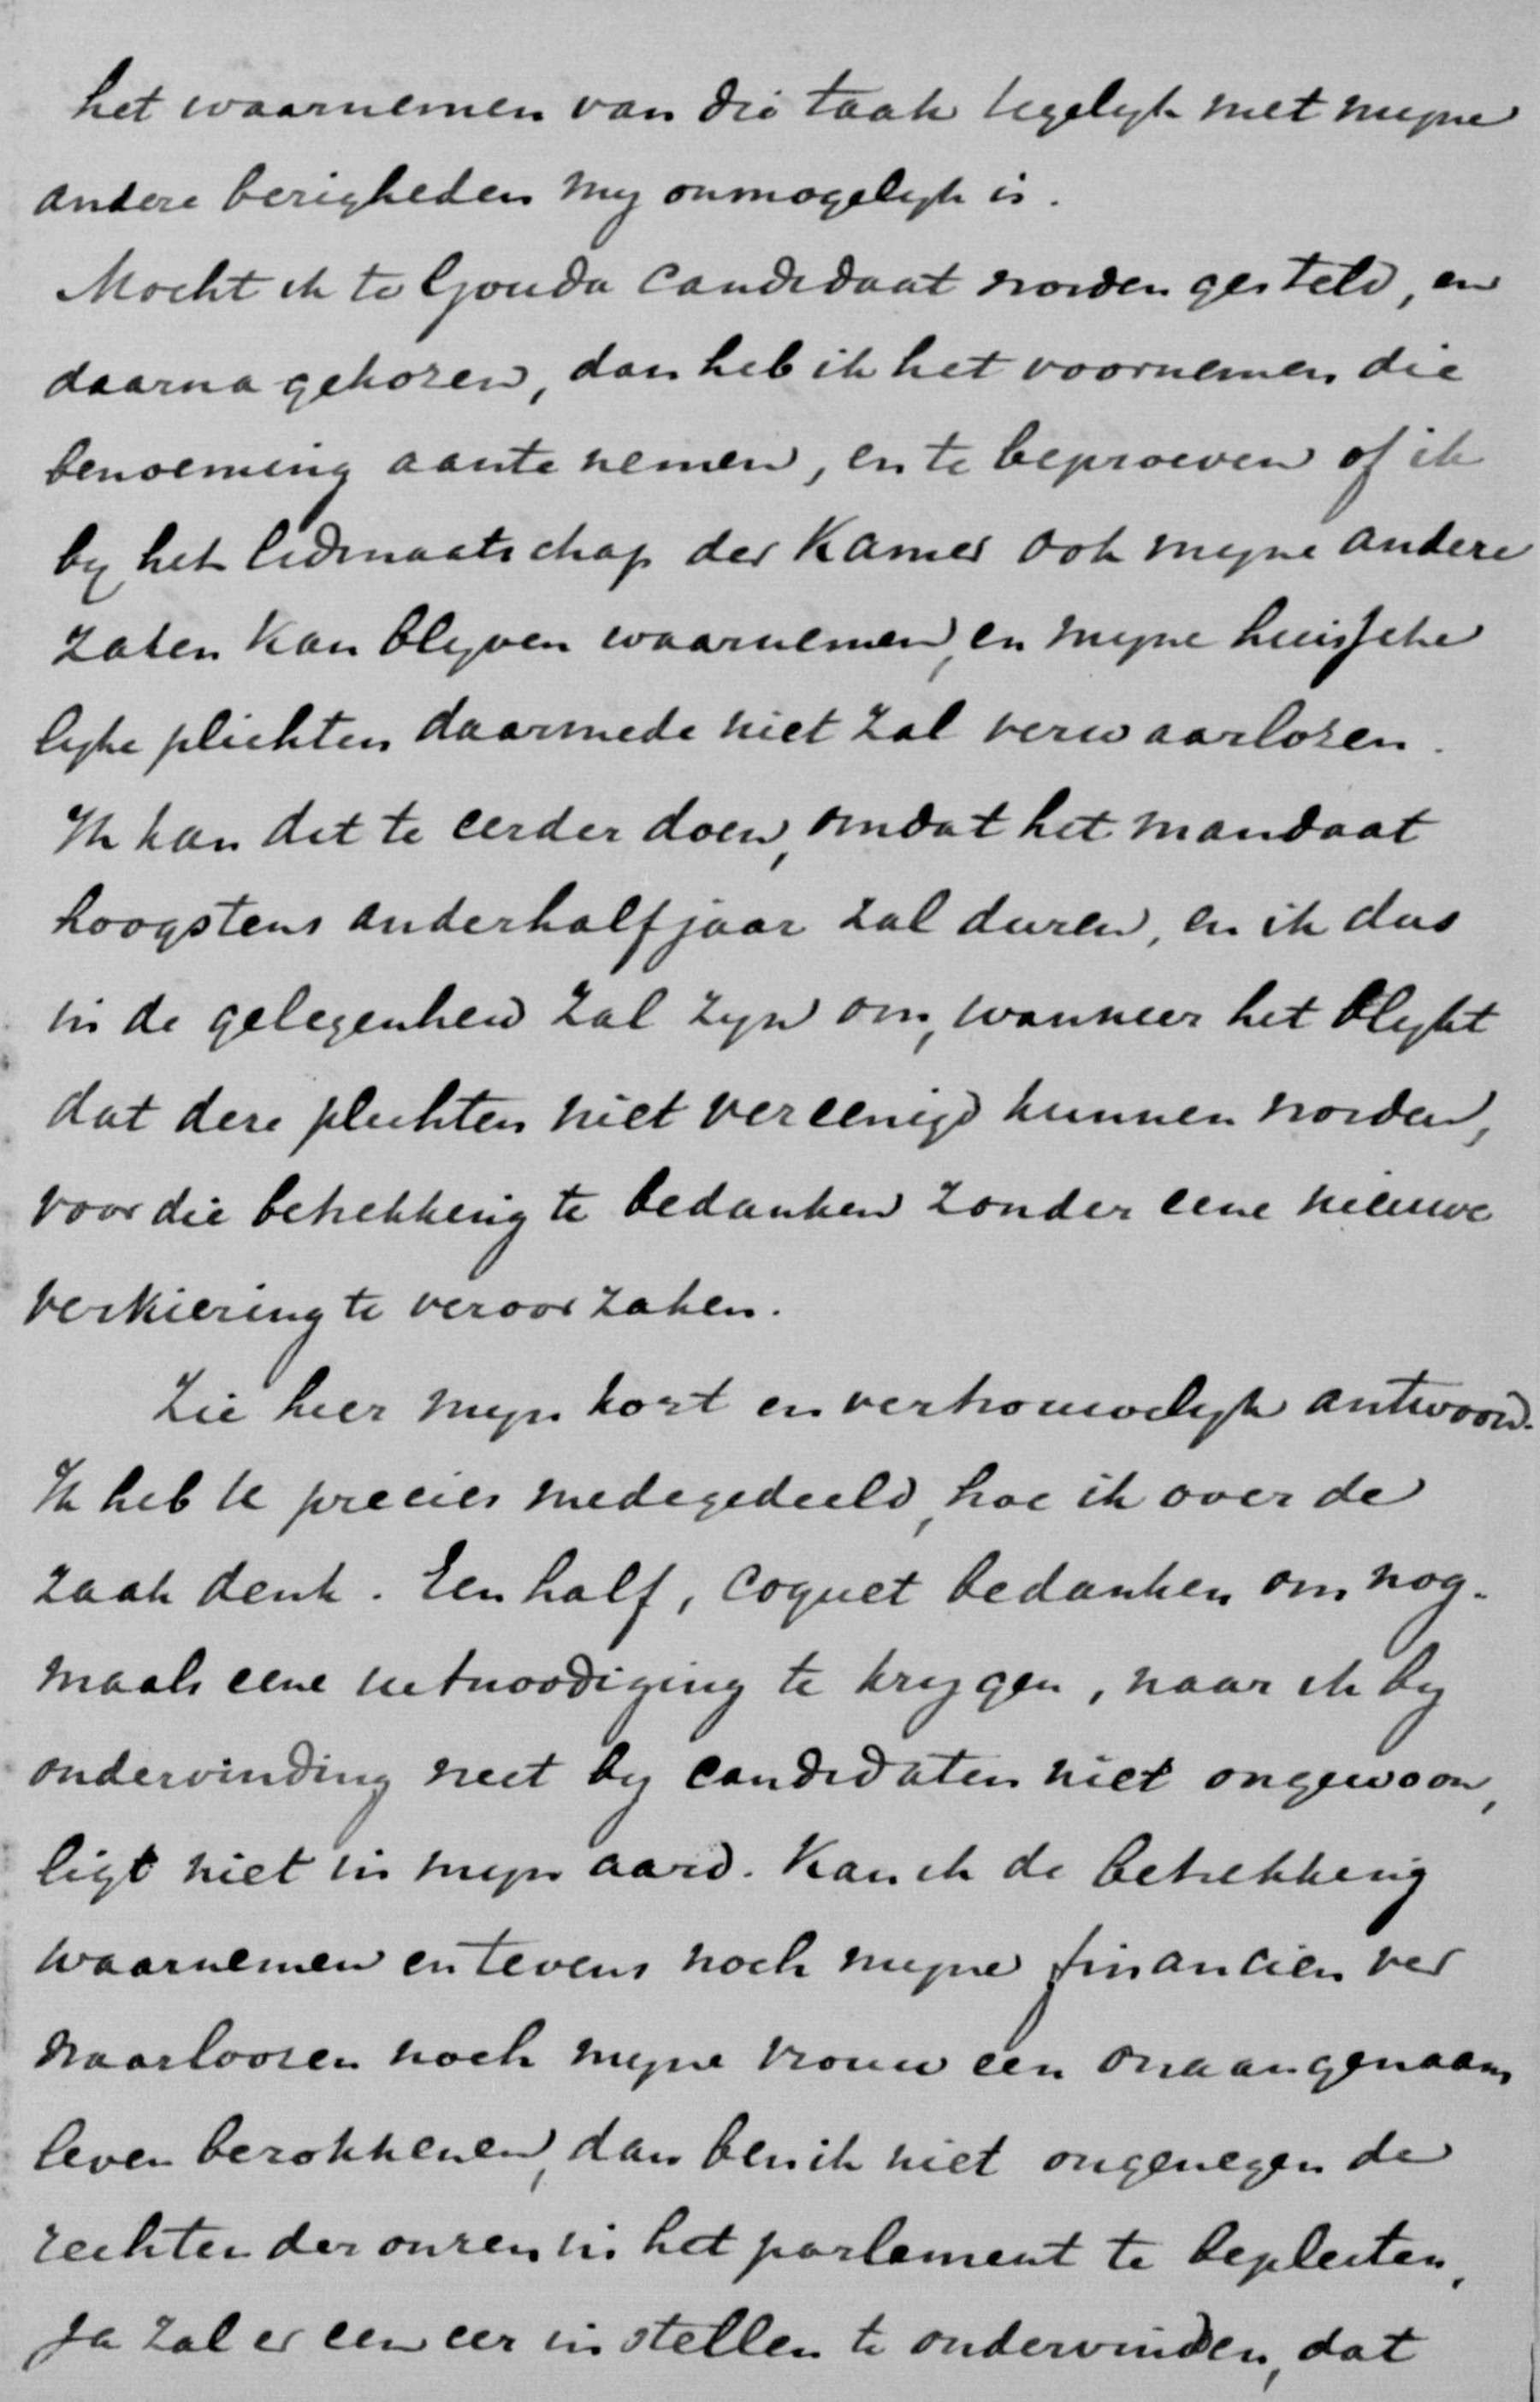 het waarnemen van die taak tegelyk met myne
andere bezigheden my onmogelyk is.
Mocht ik te Gouda candidaat worden gesteld, en
daarna gekozen, dan heb ik het voornemen die
benoeming aante nemen, en te beproeven of ik
by het lidmaatschap der Kamer ook myne andere
zaken kan blyven waarnemen, en myne huisselyke
lyke plichten daarmede niet zal verwaarlozen.
Ik kan dit te eerder doen, omdat het mandaat
hoogstens anderhalf jaar zal duren, en ik dus
in de gelegenheid zal zyn om, wanneer het blykt
dat deze plichten niet vereenigd kunnen worden,
voor die betrekking te bedanken zonder eene nieuwe
verkiezing te veroorzaken.
Zie hier myn kort en vertrouwelyk antwoord.
Ik heb U precies medegedeeld, hoe ik over de
zaak denk. Een half, coquet bedanken om nog-
maals eene uitnoodiging te krygen, naar ik by
ondervinding weet by candidaten niet ongewoon,
ligt niet in myn aard. Kan ik de betrekking
waarnemen en tevens noch myne financien ver
waarloozen noch myne vrouw een onaangenaam
leven berokkenen, dan ben ik niet ongenegen de
rechten der onzen in het parlement te bepleiten,
Ja zal er een eer in stellen te ondervinden, dat